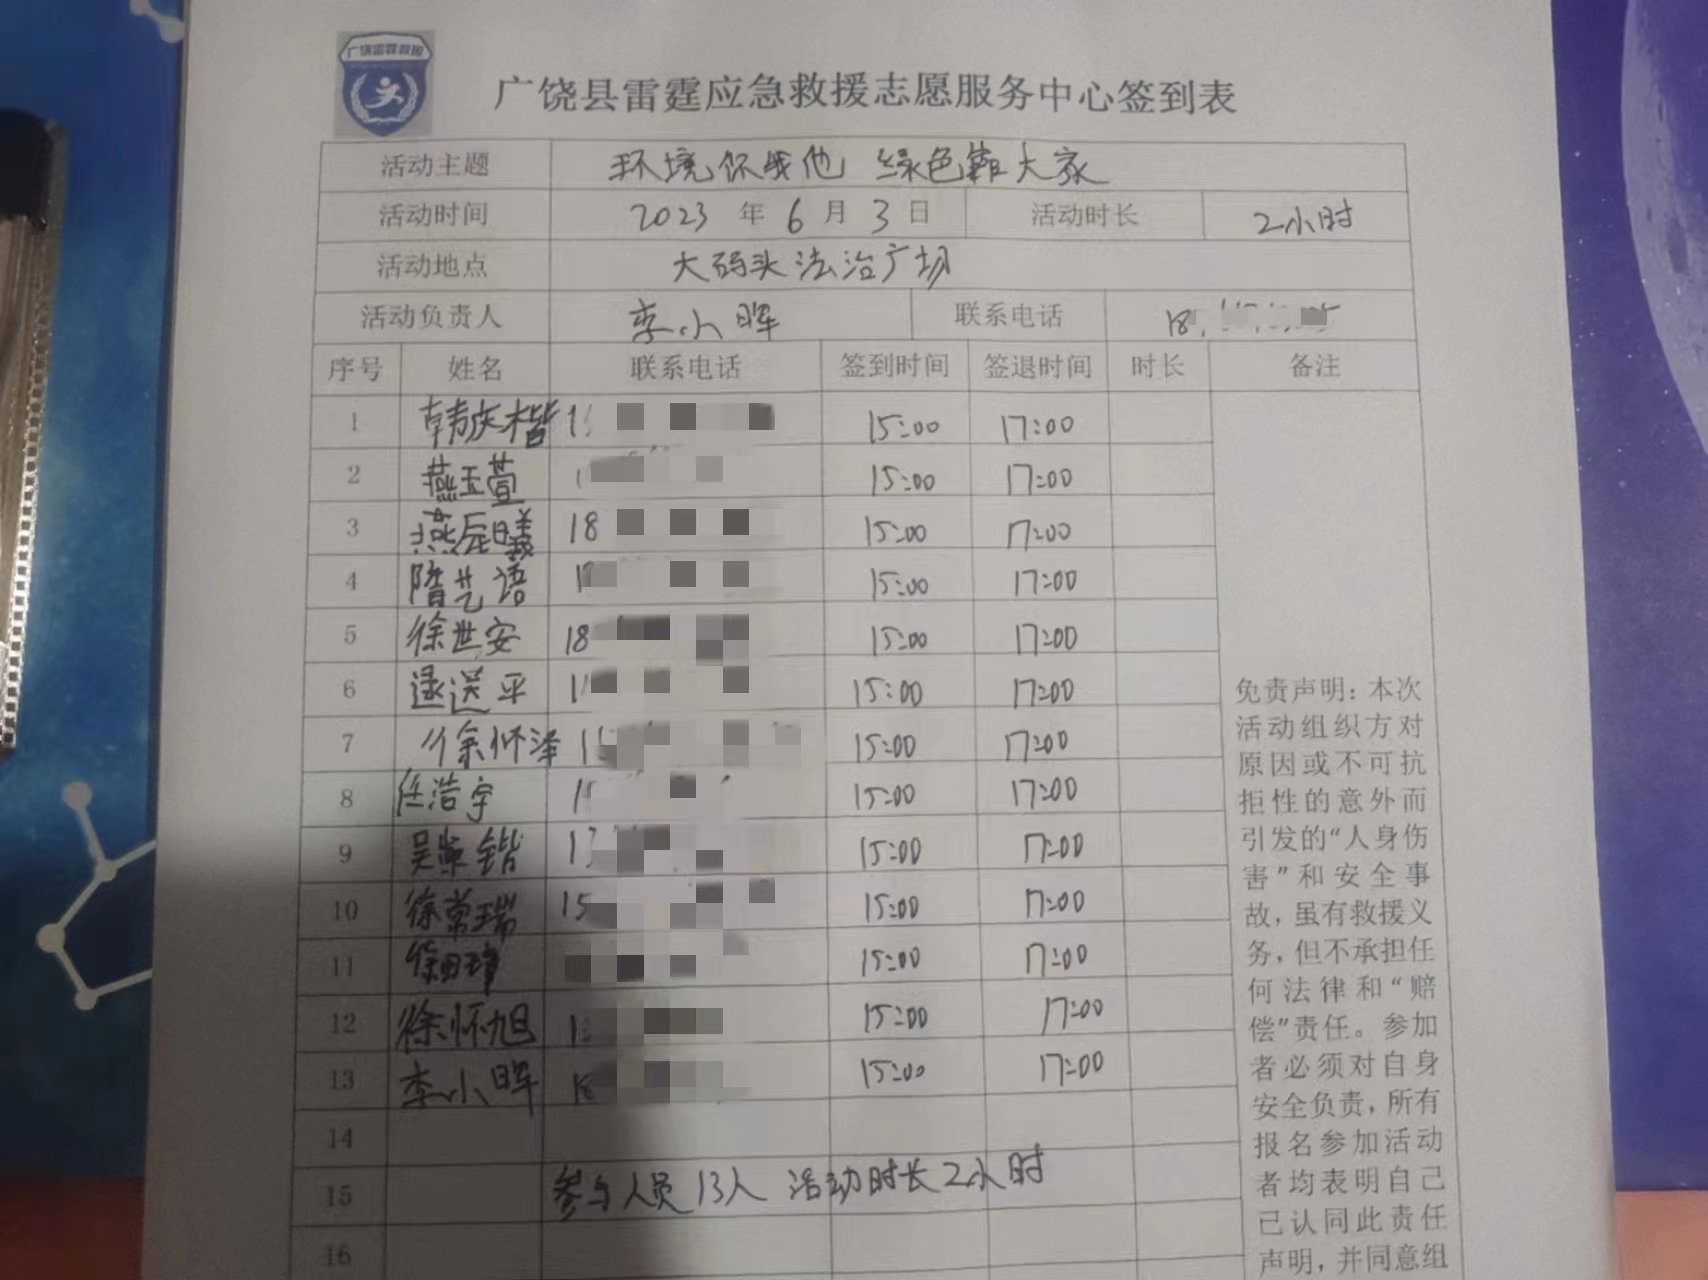 广饶雷霆救援
广饶县雷霆应急救援志愿服务中心签到表
活动主题 环境你我他 绿色靠大家
活动时间 2023 年 6 月 3 日 活动时长 2小时
活动地点 大码头法治广场
活动负责人 李小晖 联系电话 18
序号 姓名 联系电话 签到时间 签退时间 时长 备注
1 韩庆楷 15:00 17:00
2 燕玉萱 15:00 17:00
3 燕辰曦 18 15:00 17:00
4 隋艺语 15:00 17:00
5 徐世安 18 15:00 17:00
6 逯送平 15:00 17:00
7 徐怀泽 15:00 17:00
8 任浩宇 15:00 17:00
9 吴 锴 13 15:00 17:00
10 徐常瑞 15 15:00 17:00
11 徐 15:00 17:00
12 徐怀旭 15:00 17:00
13 李小晖 15:00 17:00
14
15 参与人员13人 活动时长2小时
16
免责声明：本次
活动组织方对
原因或不可抗
拒性的意外而
引发的“人身伤
害”和安全事
故，虽有救援义
务，但不承担任
何法律和“赔
偿”责任。参加
者必须对自身
安全负责，所有
报名参加活动
者均表明自己
已认同此责任
声明，并同意组